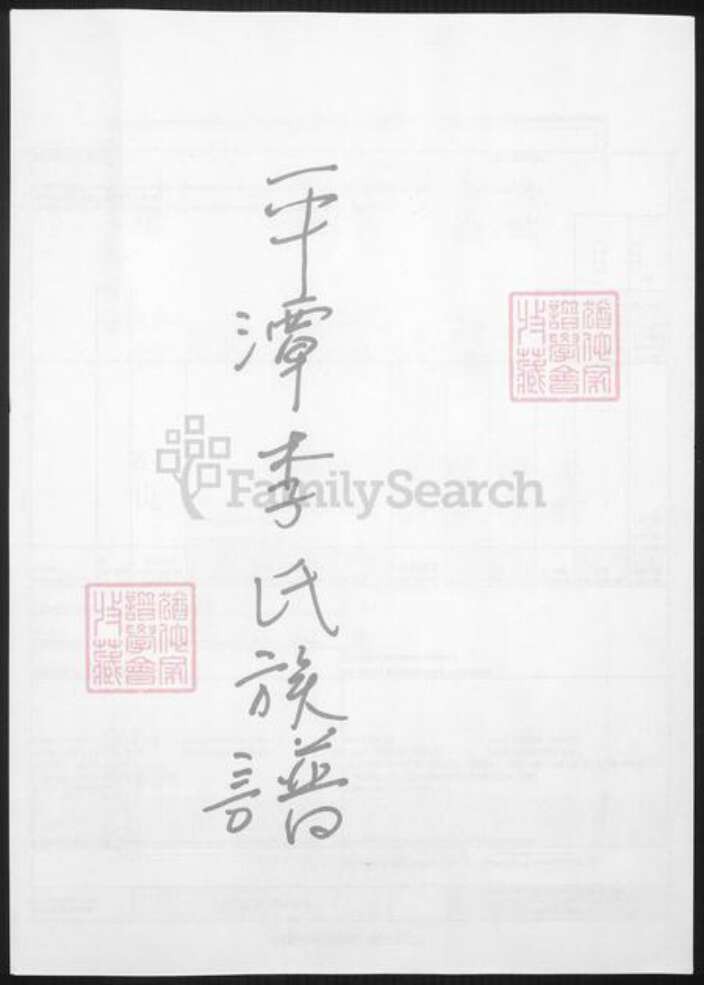 平潭李氏族譜
猶他家
譜學會
收藏
FamilySearch
猶他家
譜學會
收藏